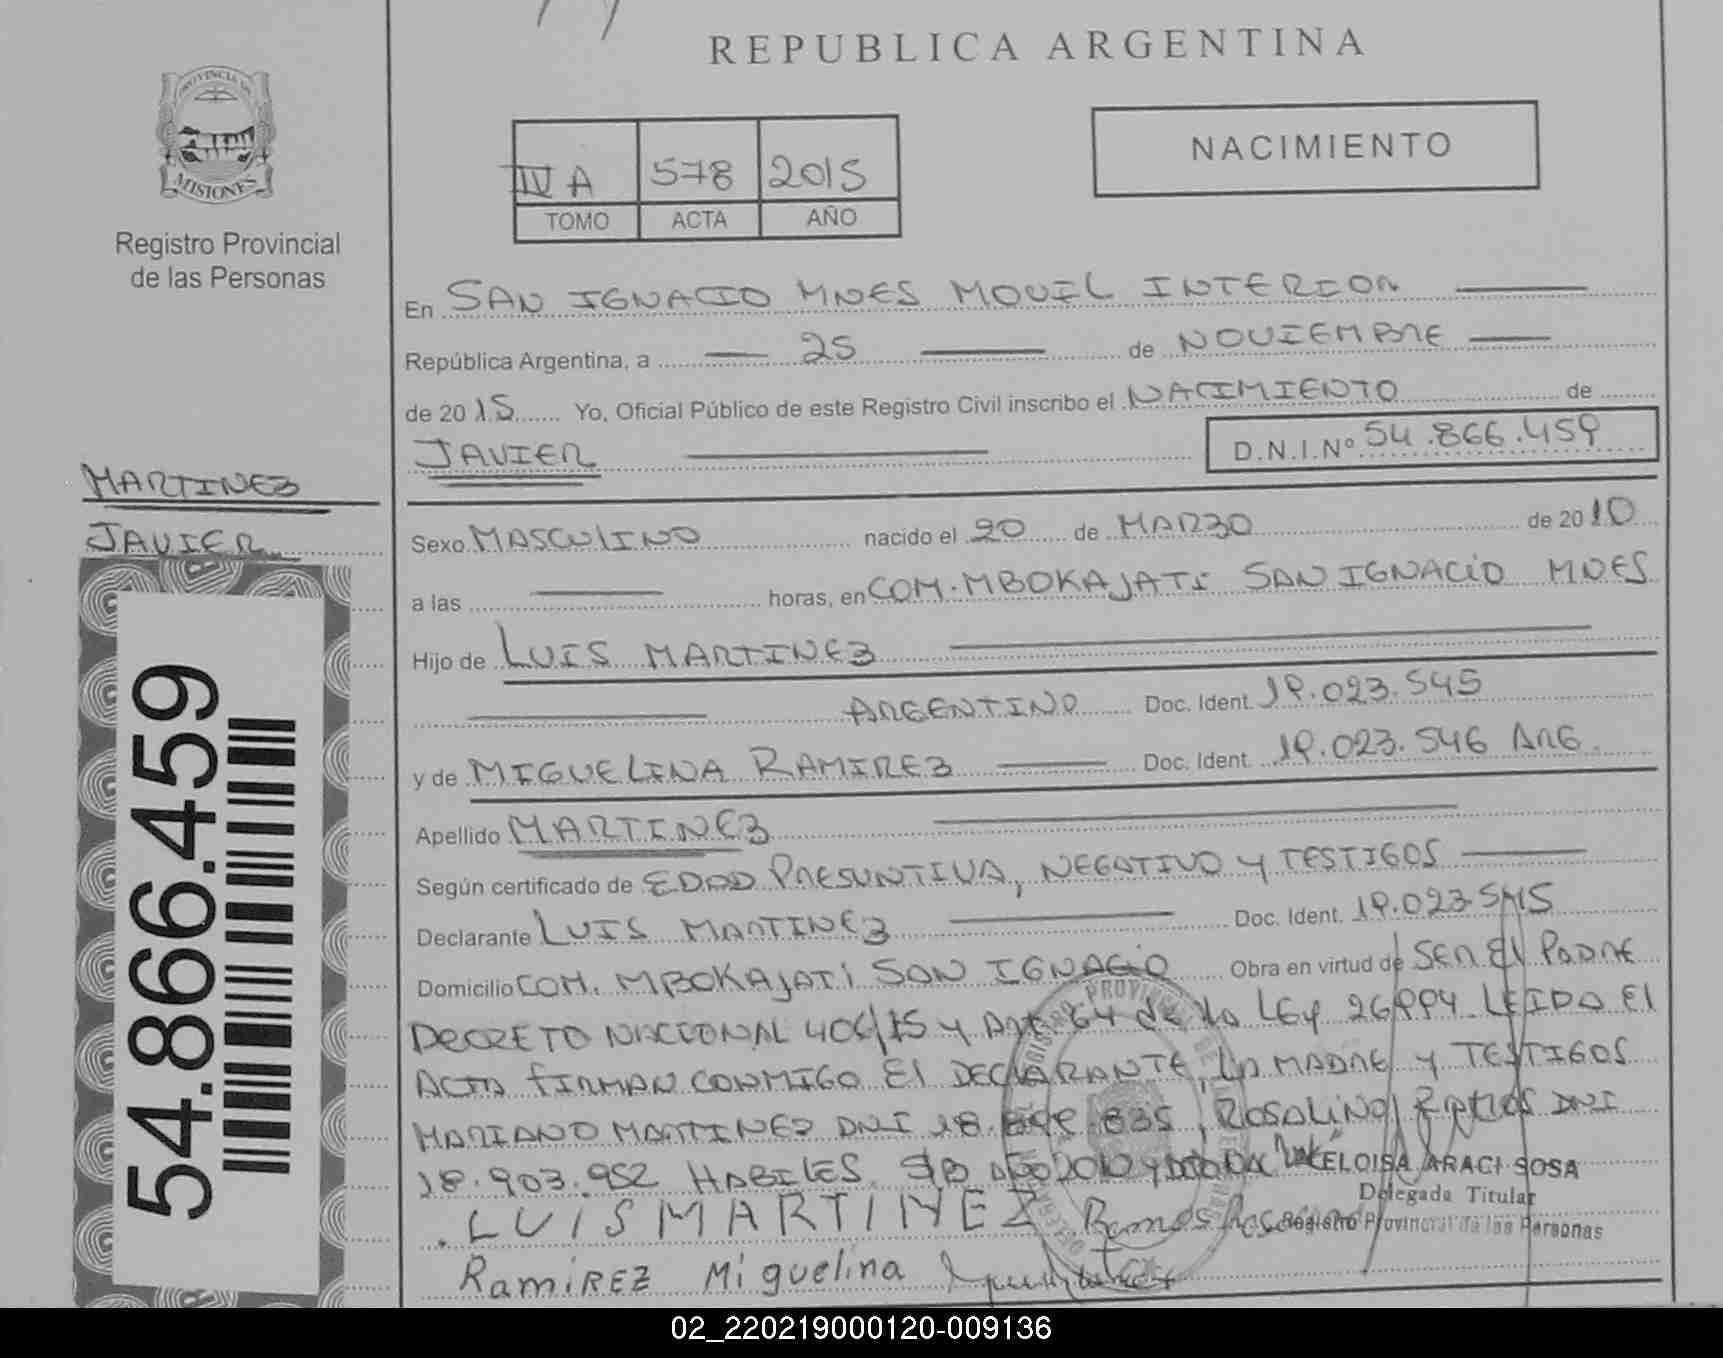 REPUBLICA ARGENTINA
PROVINCIA DE
MISIONES
Registro Provincial
de las Personas
IV A 578 2015
TOMO ACTA AÑO
NACIMIENTO
En SAN IGNACIO MNES MOVIL INTERIOR
República Argentina, a 25 de NOVIEMBRE
de 2015 Yo, Oficial Público de este Registro Civil inscribo el NACIMIENTO de
JAVIER
D.N.I.Nº 54.866.459
MARTINEZ
JAVIER
54.866.459
Sexo MASCULINO nacido el 20 de MARZO de 2010
a las horas, en COM. MBOKAJATI SAN IGNACIO MNES
Hijo de LUIS MARTINEZ
ARGENTINO Doc. Ident. 19.023.545
y de MIGUELINA RAMIREZ Doc. Ident. 19.023.546 ARG.
Apellido MARTINEZ
Según certificado de EDAD PRESUNTIVA, NEGATIVO Y TESTIGOS
Declarante LUIS MARTINEZ Doc. Ident. 19.023.545
Domicilio COM. MBOKAJATI SAN IGNACIO Obra en virtud de SER El PADRE
DECRETO NACIONAL 406/15 y Art. 64 de la LEy 26994. LEIDO El
ACTA FIRMAN CONMIGO El DECLARANTE, LA MADRE Y TESTIGOS
MARIANO MARTINEZ DNI 18. 835, ROSALINO RAMOS DNI
18.903.952 HABILES.
ELOISA ARACI SOSA
Delegada Titular
Registro Provincial de las Personas
LUIS MARTINEZ Ramos
RamiREZ Miguelina
02_220219000120-009136